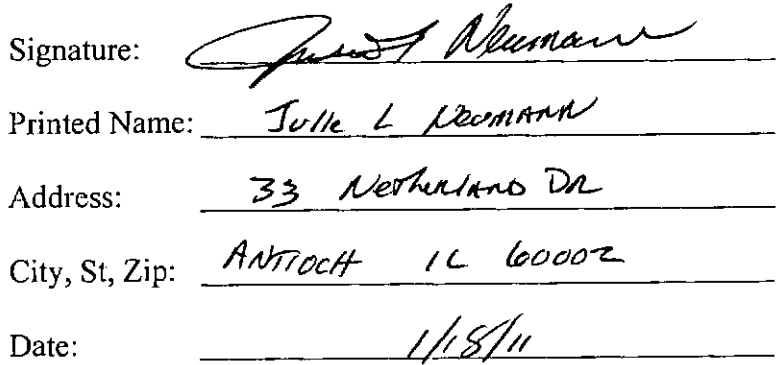 Signature: Neumann
Printed Name: Julie L Neumann
Address: 33 Netherland Dr
City, St, Zip: ANTIOCH IL 60002
Date: 1/18/11